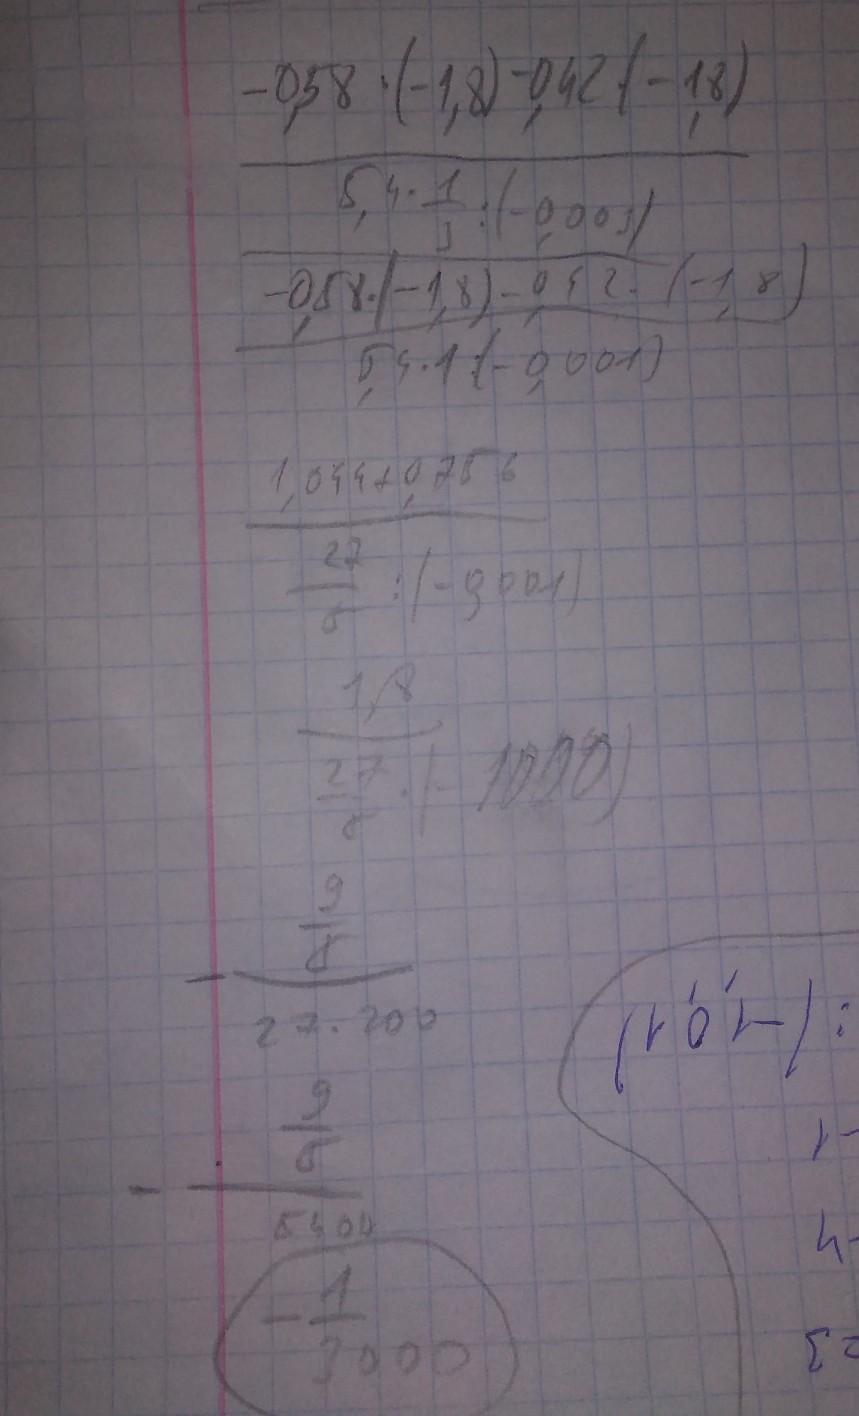 -0,58 · (-1,8) - 0,42 · (-1,8)
5,4 · 1/3 : (-0,003)
-0,58 · (-1,8) - 0,42 · (-1,8)
5,4 · 1 : (-0,001)
1,044 + 0,756
27/5 : (-0,001)
1,8
27/5 · (-1000)
9/5
-
27 · 200
9/5
-
5400
-1/3000
: (-1,0,1)
-1
-4
=3